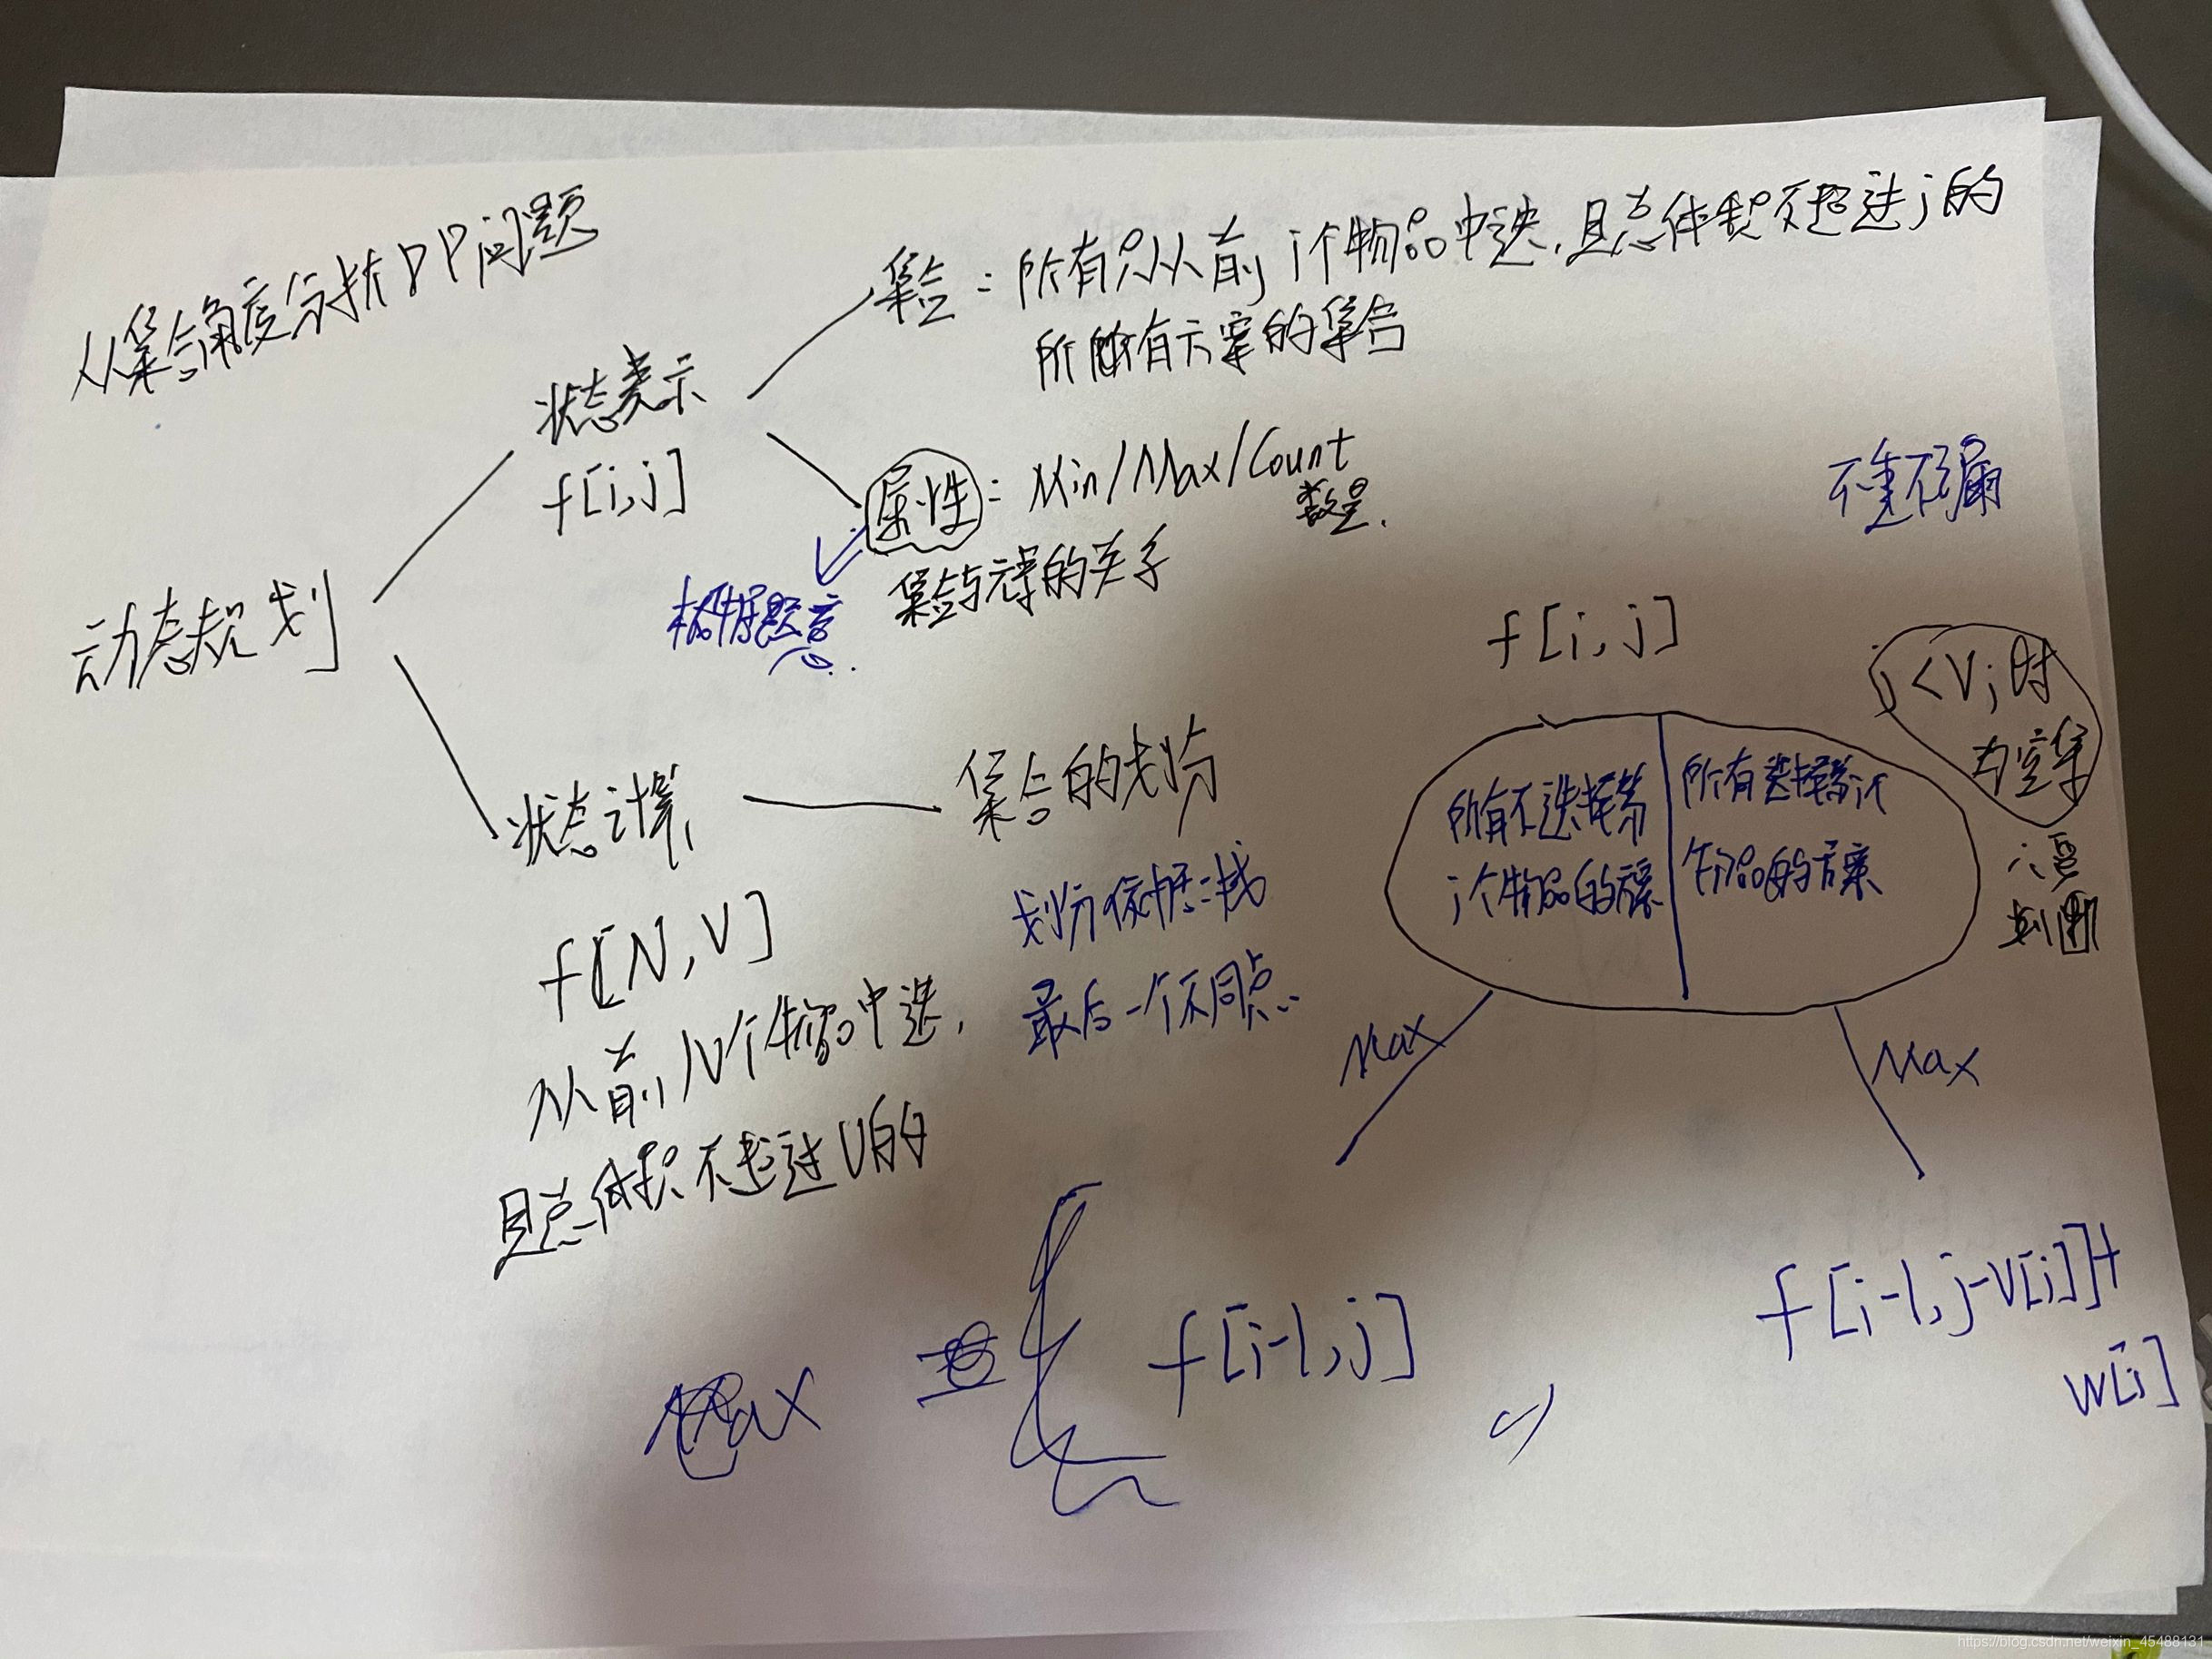 从集合角度分析DP问题
集合：所有只从前i个物品中选，且总体积不超过j的
所有方案的集合
状态表示
f[i,j]
属性：Min/Max/Count
数量.
集合与元素的关系
根据题意.
不重不漏
动态规划
f[i,j]
j<Vj时
为空集
需
判断
状态计算
集合的划分
划分依据：
最后一个不同点.
所有不选择第
i个物品的方案
所有选择第i个
物品的方案
f[N,V]
从前N个物品中选,
且总体积不超过V的
Max
Max
Max
f[i-1,j]
,
f[i-1,j-V[i]]+
w[i]
https://blog.csdn.net/weixin_45488131